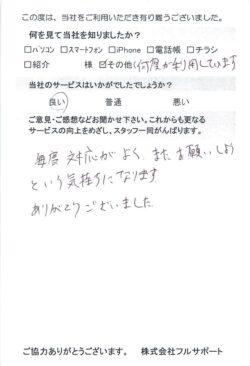 この度は、当社をご利用いただき有り難うございました。
何を見て当社を知りましたか?
□パソコン □スマートフォン □iPhone □電話帳 □チラシ
□紹介 様 ☑その他(何度か利用しています
当社のサービスはいかがでしたでしょうか?
良い 普通 悪い
ご意見・ご感想などお聞かせ下さい。これからも更なる
サービスの向上をめざし、スタッフ一同がんばります。
毎度 対応がよく、またお願いしよう
という気持ちになります
ありがとうございました
ご協力ありがとうございます。 株式会社フルサポート